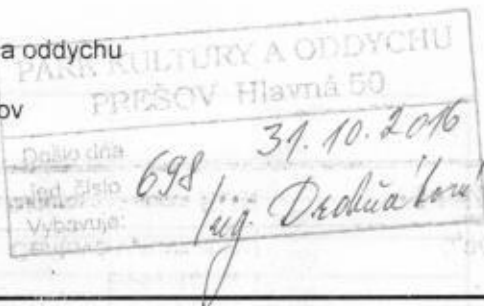 a oddychu
PARK KULTURY A ODDYCHU
ov
PREŠOV Hlavná 50
Došlo dňa 31.10.2016
Jed. číslo 698
Vybavuje: Ing.